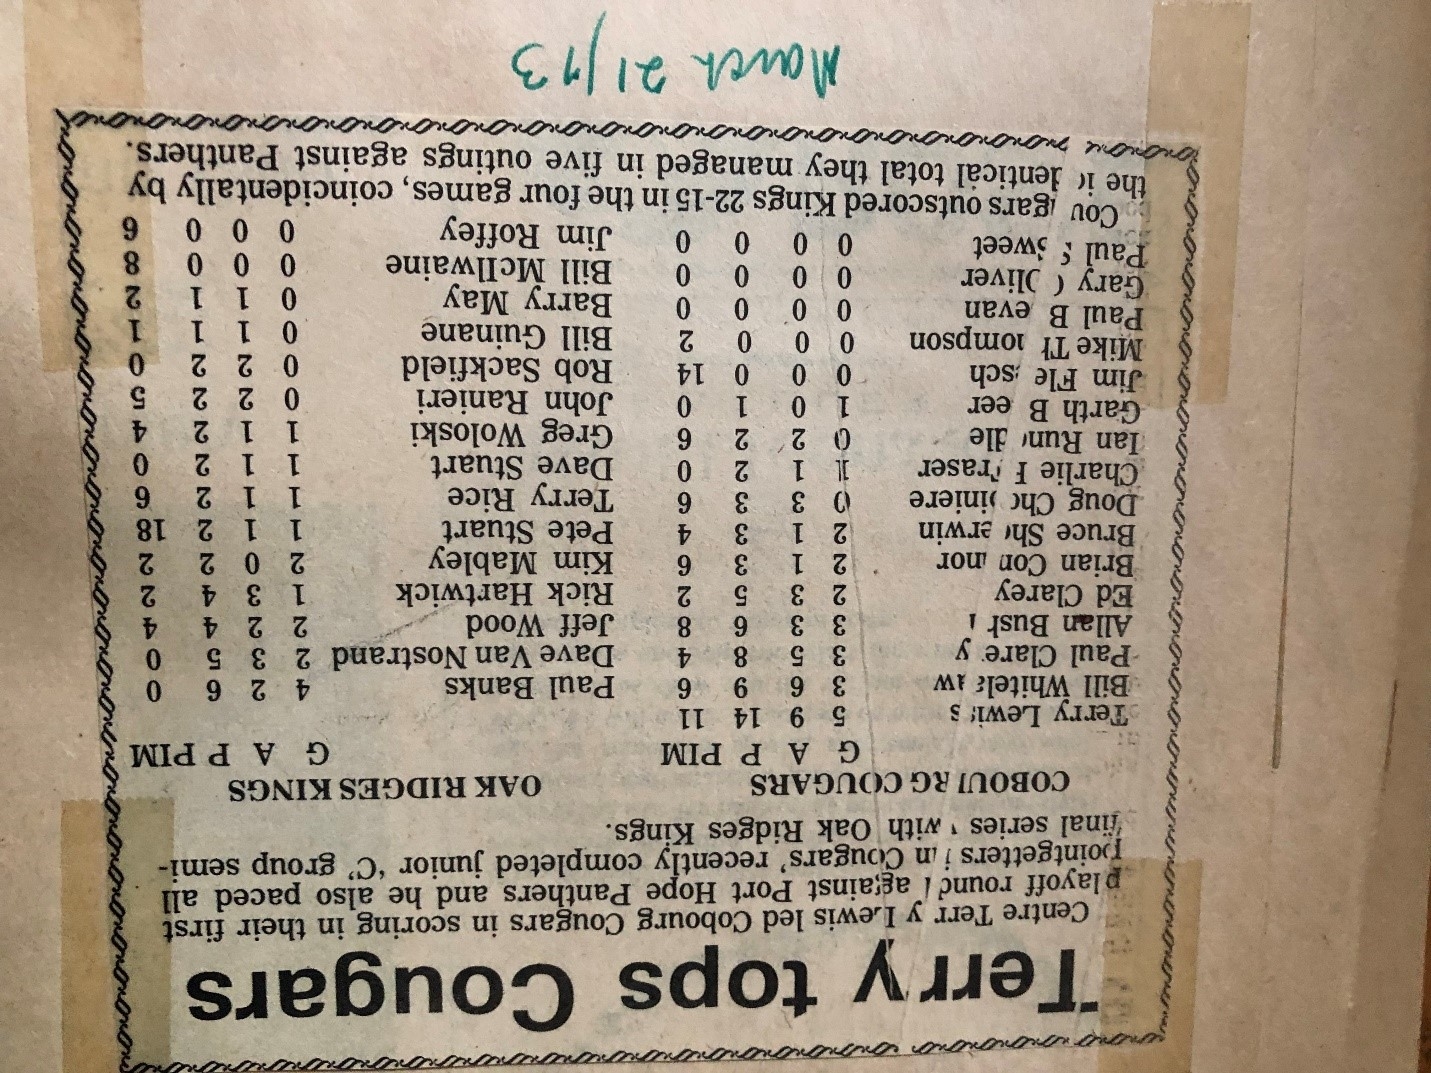 Terry tops Cougars
Centre Terry Lewis led Cobourg Cougars in scoring in their first
playoff round against Port Hope Panthers and he also paced all
pointgetters in Cougars' recently completed junior 'C' group semi-
final series with Oak Ridges Kings.
COBOURG COUGARS OAK RIDGES KINGS
G A P PIM G A P PIM
Terry Lewis 5 9 14 11
Bill Whitelaw 3 6 9 6 Paul Banks 4 2 6 0
Paul Clarey 3 5 8 4 Dave Van Nostrand 2 3 5 0
Allan Bush 3 3 6 8 Jeff Wood 2 2 4 4
Ed Clarey 2 3 5 2 Rick Hartwick 1 3 4 2
Brian Connor 2 1 3 6 Kim Mabley 2 0 2 2
Bruce Sherwin 2 1 3 4 Pete Stuart 1 1 2 18
Doug Choiniere 0 3 3 6 Terry Rice 1 1 2 6
Charlie Fraser 1 1 2 0 Dave Stuart 1 1 2 0
Ian Rundle 0 2 2 6 Greg Woloski 1 1 2 4
Garth Beer 1 0 1 0 John Ranieri 0 2 2 5
Jim Flesch 0 0 0 14 Rob Sackfield 0 2 2 0
Mike Thompson 0 0 0 2 Bill Guinane 0 1 1 1
Paul Bevan 0 0 0 0 Barry May 0 1 1 2
Gary Oliver 0 0 0 0 Bill McIlwaine 0 0 0 8
Paul Sweet 0 0 0 0 Jim Roffey 0 0 0 6
Cougars outscored Kings 22-15 in the four games, coincidentally by
the identical total they managed in five outings against Panthers.
March 21/73